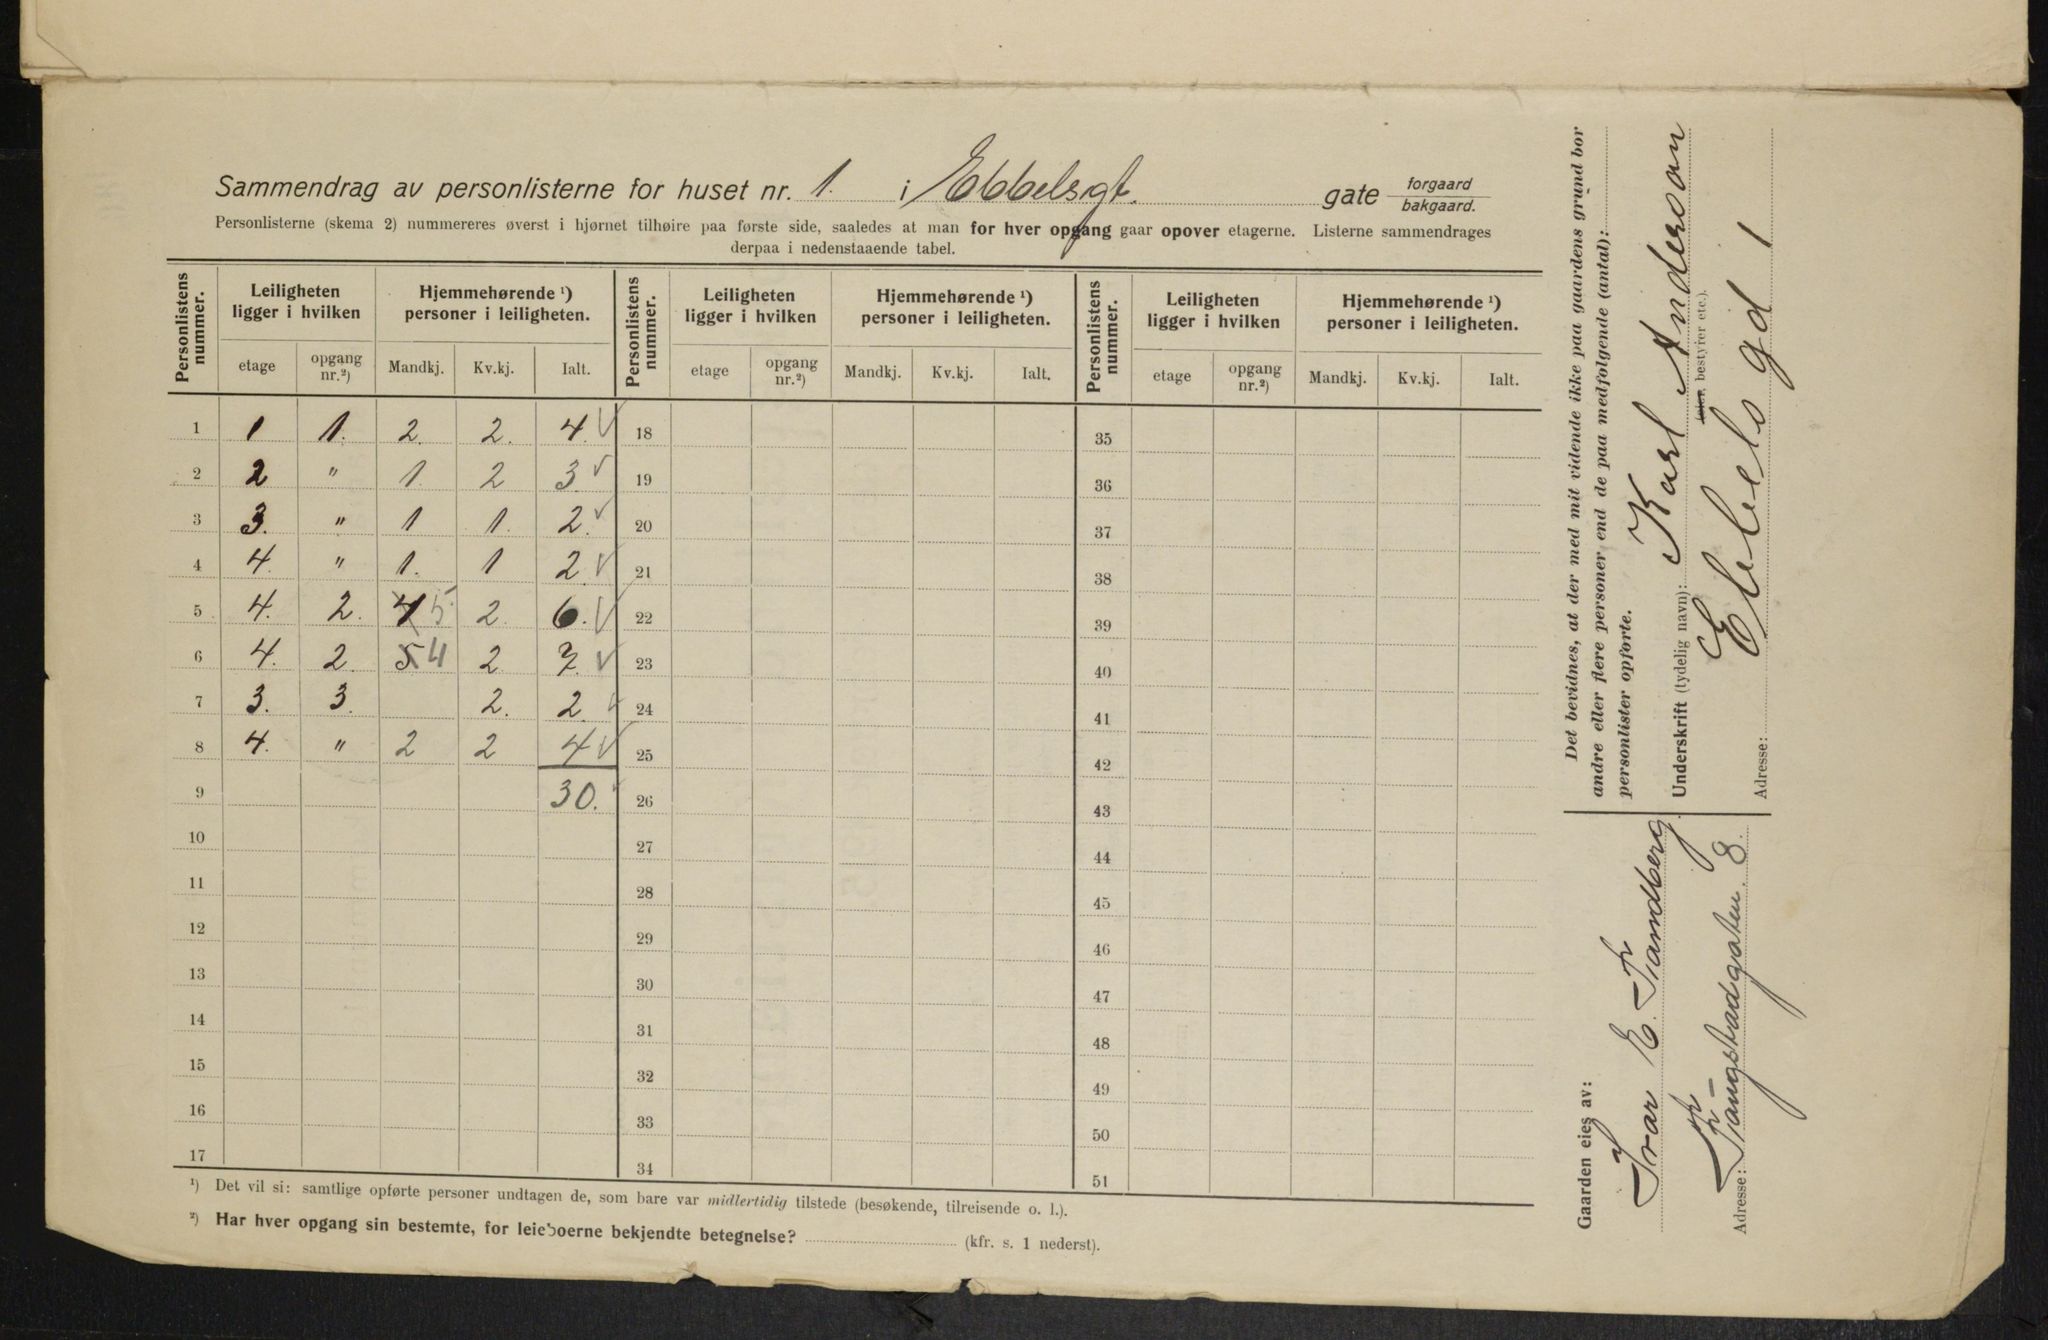 Sammendrag av personlisterne for huset nr. 1. i Ebbelsgt. gate forgaard bakgaard.
Personlisterne (skema 2) nummereres øverst i hjørnet tilhøire paa første side, saaledes at man for hver opgang gaar opover etagerne. Listerne sammendrages
derpaa i nedenstaaende tabel.
Personlistens nummer. Leiligheten ligger i hvilken Hjemmehørende ¹) personer i leiligheten. Personlistens nummer. Leiligheten ligger i hvilken Hjemmehørende ¹) personer i leiligheten. Personlistens nummer. Leiligheten ligger i hvilken Hjemmehørende ¹) personer i leiligheten.
etage opgang nr.²) Mandkj. Kv.kj. Ialt. etage opgang nr.²) Mandkj. Kv.kj. Ialt. etage opgang nr.²) Mandkj. Kv.kj. Ialt.
1 1 1. 2. 2. 4. √ 18 35
2 2 " 1. 2 3. √ 19 36
3 3. " 1 1. 2. √ 20 37
4 4. " 1. 1 2. √ 21 38
5 4. 2. 5 2. 6. √ 22 39
6 4. 2. 5 4 2 7. √ 23 40
7 3. 3. 2. 2. √ 24 41
8 4. " 2 2 4 √ 25 42
9 30. 26 43
10 27 44
11 28 45
12 29 46
13 30 47
14 31 48
15 32 49
16 33 50
17 34 51
¹) Det vil si: samtlige opførte personer undtagen de, som bare var midlertidig tilstede (besøkende, tilreisende o. l.).
²) Har hver opgang sin bestemte, for leieboerne bekjendte betegnelse? (kfr. s. 1 nederst).
Det bevidnes, at der med mit vidende ikke paa gaardens grund bor
andre eller flere personer end de paa medfølgende (antal):
personlister opførte.
Underskrift (tydelig navn): Karl Anderson
bestyrer etc.).
Adresse: Ebbels gd 1
Gaarden eies av:
Ivar E. Sandberg
Adresse: Langstadgaten 8.